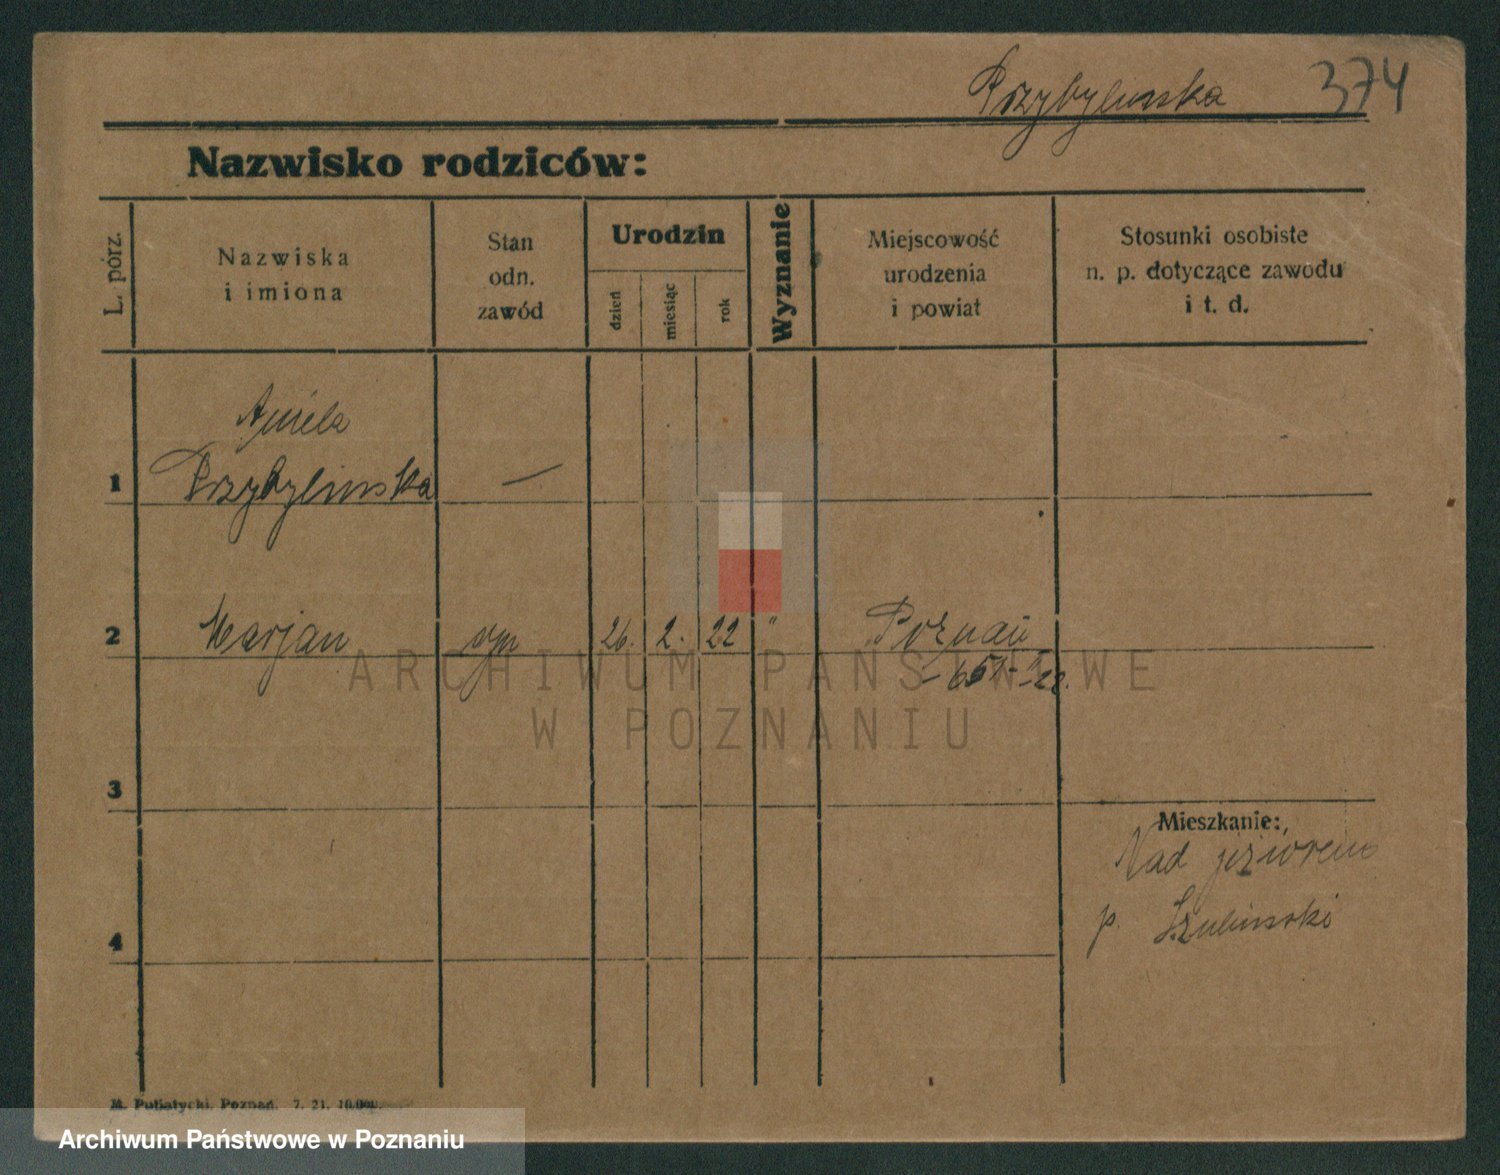 Przybylinska 374
Nazwisko rodziców:
L. porz.
Nazwiska
i imiona
Stan
odn.
zawód
Urodzin
dzień
miesiąc
rok
Wyznanie
Miejscowość
urodzenia
i powiat
Stosunki osobiste
n. p. dotyczące zawodu
i t. d.
Aniela
1 Przybylinska —
2 Marjan syn 26. 2. 22 " Poznań
3
Mieszkanie:
Nad jeziorem
p. Szulinski
4
M. Putiatycki, Poznań. 7. 21. 10.000.
ARCHIWUM PAŃSTWOWE
W POZNANIU
Archiwum Państwowe w Poznaniu